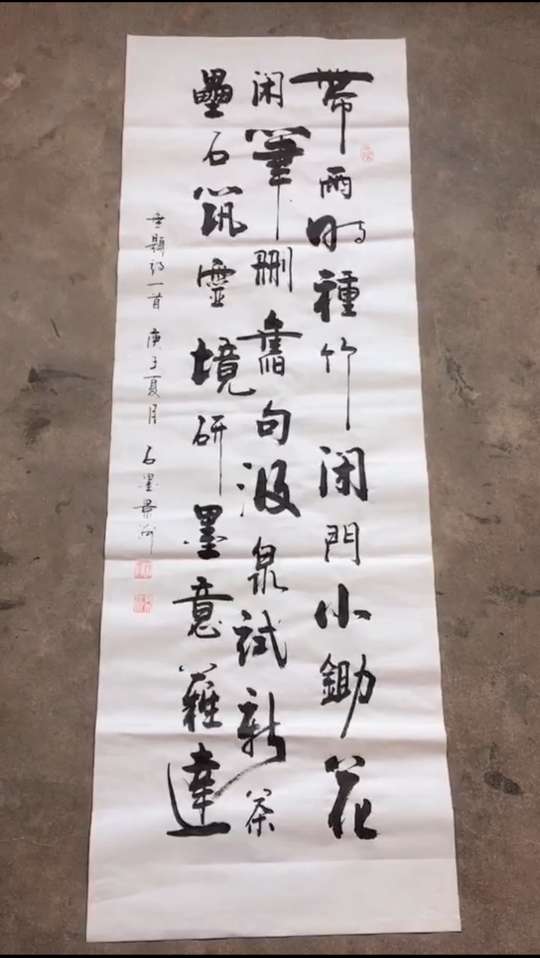 帶雨時種竹閑門小鋤花
閑筆刪舊句汲泉試新茶
壘石筑靈境研墨意難達
無題詩一首 庚子夏月 石墨